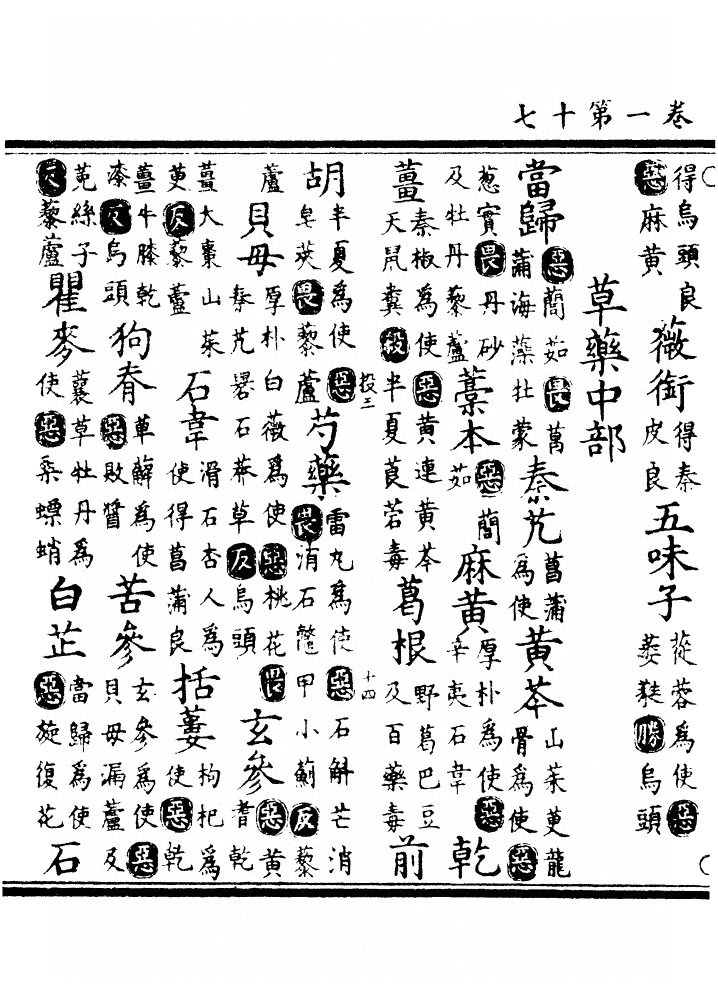 卷一第十七
得烏頭良惡麻黃薇銜得秦皮良五味子蓯蓉為使惡葵鞋勝烏頭
草藥中部
當歸惡䕡茹畏菖蒲海藻牡蒙秦艽菖蒲為使黃芩山茱萸龍骨為使惡
葱實畏丹砂及牡丹藜蘆藁本惡䕡茹麻黃厚朴為使惡辛夷石韋乾
薑秦椒為使惡黃連黃芩天鼠糞殺半夏莨菪毒葛根野葛巴豆及百藥毒前
投三 十四
胡半夏為使惡皂莢畏藜蘆芍藥雷丸為使惡石斛芒消畏消石鼈甲小薊反藜
蘆貝母厚朴白薇為使惡桃花畏秦艽礜石莽草反烏頭玄參惡黃耆乾
薑大棗山茱萸反藜蘆石韋滑石杏人為使得菖蒲良括蔞枸杞為使惡乾
薑牛膝乾漆反烏頭狗脊萆薢為使惡敗醬苦參玄參為使惡貝母漏蘆及
菟絲子反藜蘆瞿麥蘘草牡丹為使惡桑螵蛸白芷當歸為使惡旋復花石